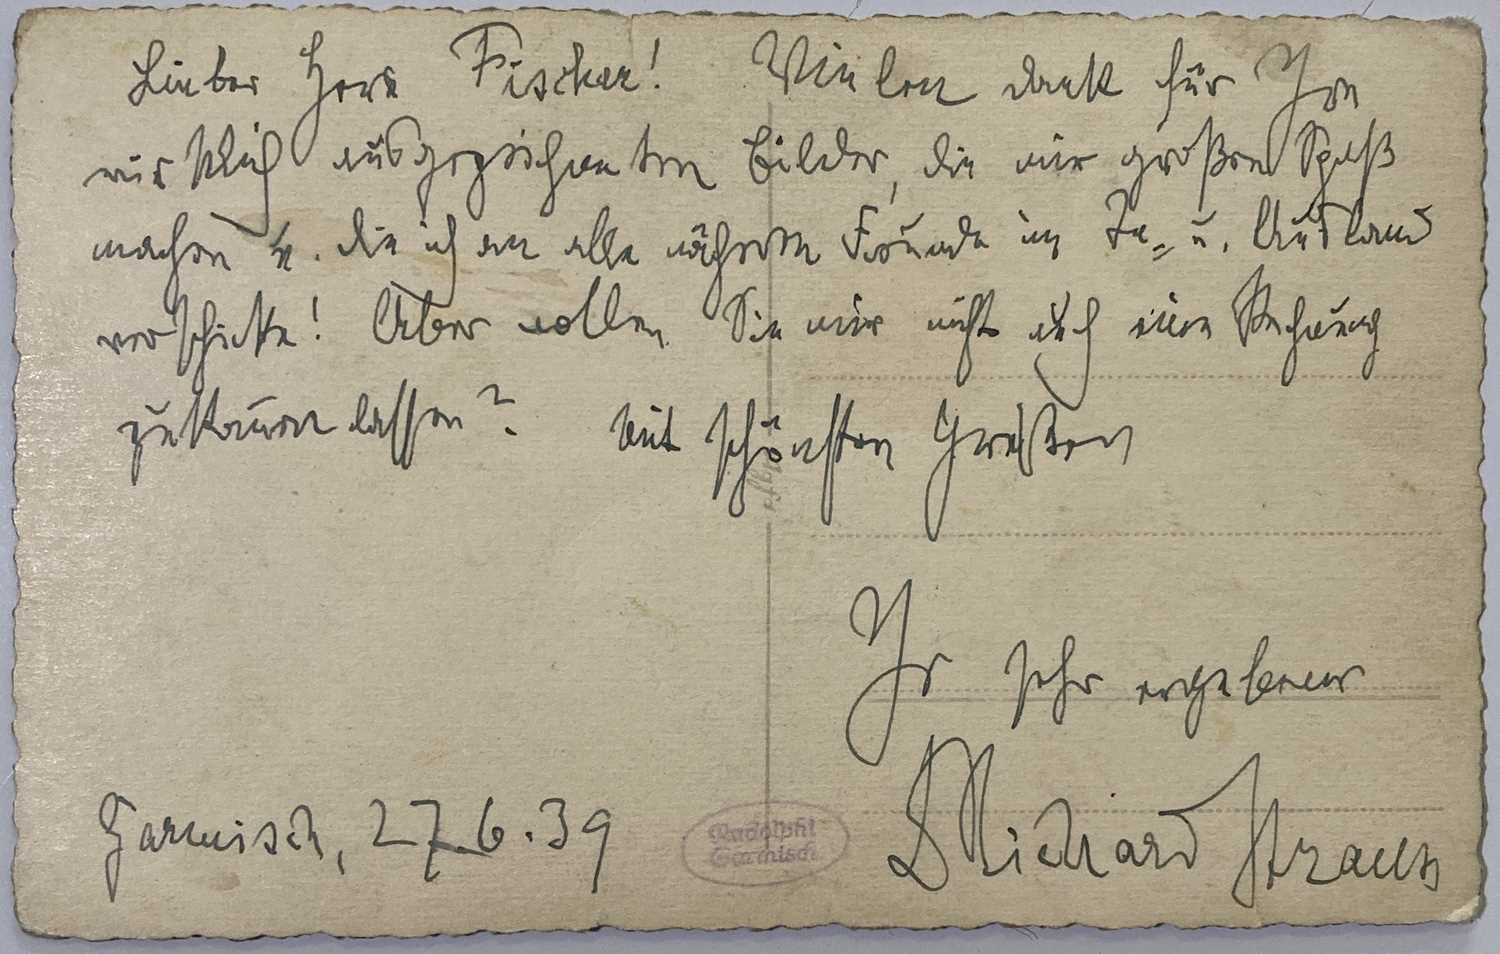 Lieber Herr Fischer! Vielen Dank für Ihre
wirklich ausgezeichneten Bilder, die mir großen Spaß
machen u. die ich an alle näheren Freunde im In- u. Ausland
verschicke! Aber wollen Sie mir nicht auch eine Rechnung
zukommen lassen? Mit schönsten Grüßen
Ihr sehr ergebener
Dr Richard Strauss
Garmisch, 27.6.39
Rudolphi
Garmisch